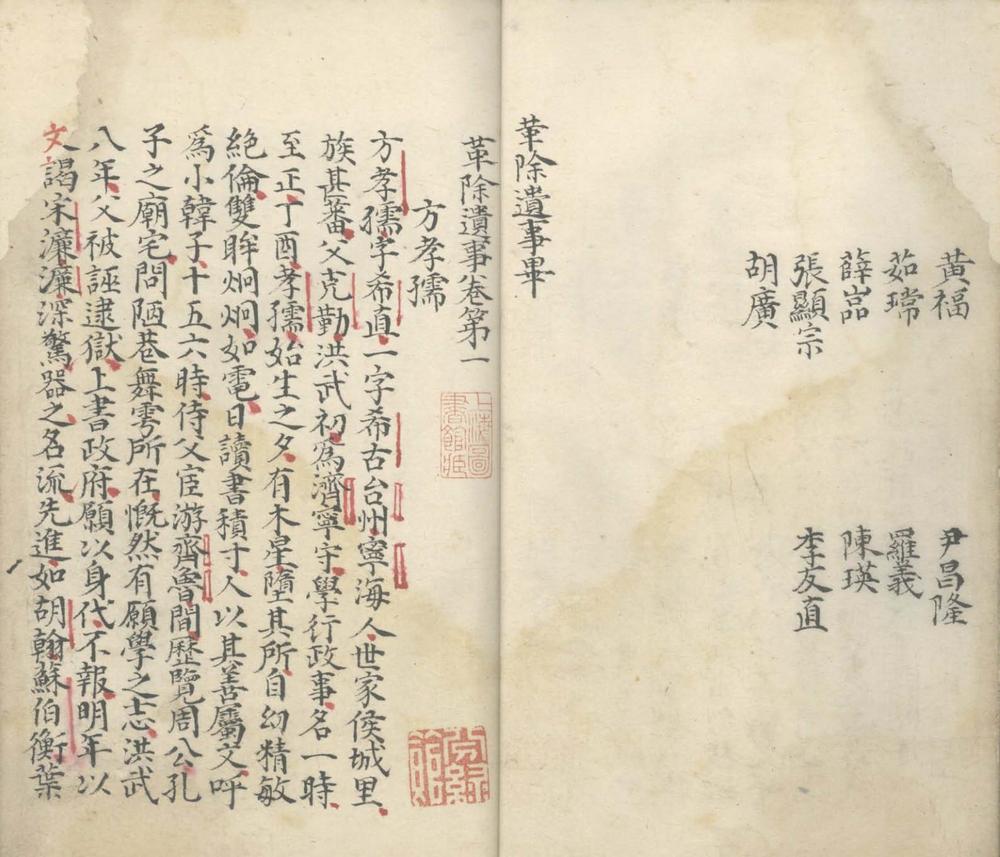 黃福　尹昌隆
茹瑺　羅義
薛嵓　陳瑛
張顯宗　李友直
胡廣
革除遺事畢
革除遺事卷第一
上海圖書館藏
方孝孺
方孝孺字希直一字希古台州寧海人世家侯城里
族甚蕃父克勤洪武初爲濟寧守學行政事名一時
至正丁酉孝孺始生之夕有木星墮其所自幼精敏
絶倫雙眸炯炯如電日讀書積寸人以其善屬文呼
爲小韓子十五六時侍父宦游齊魯間歷覽周公孔
子之廟宅問陋巷舞雩所在慨然有願學之志洪武
八年父被誣逮獄上書政府願以身代不報明年以
文謁宋濂濂深驚器之名流先進如胡翰蘇伯衡葉